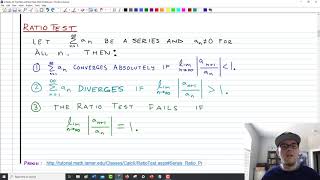 RATIO TEST
LET ∞ Σ n=1 a_n BE A SERIES AND a_n ≠ 0 FOR
ALL n. THEN:
① ∞ Σ n=1 a_n CONVERGES ABSOLUTELY IF lim n→∞ |a_{n+1}/a_n| < 1.
② ∞ Σ n=1 a_n DIVERGES IF lim n→∞ |a_{n+1}/a_n| > 1.
③ THE RATIO TEST FAILS IF
lim n→∞ |a_{n+1}/a_n| = 1.
http://tutorial.math.lamar.edu/Classes/CalcII/RatioTest.aspx#Series_Ratio_Pr